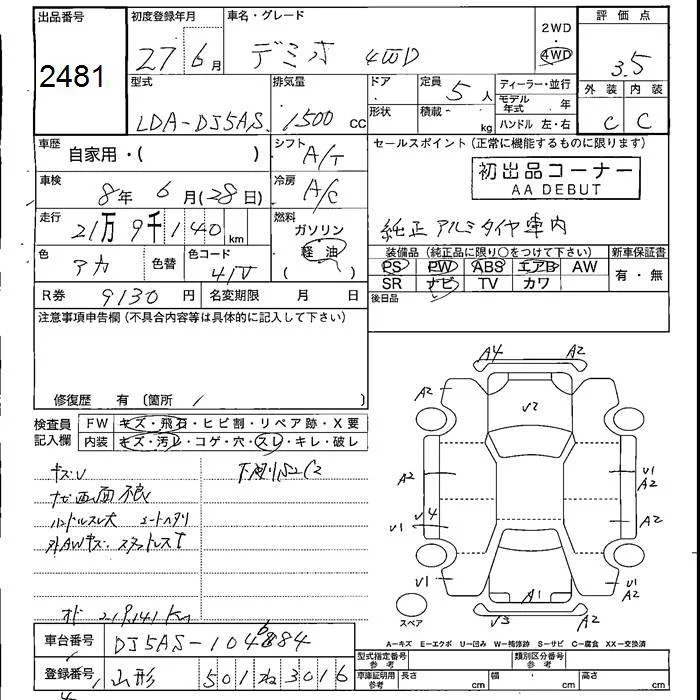 出品番号
2481
初度登録年月
27年6月
車名・グレード
デミオ 4WD
2WD
4WD
評価点
3.5
型式
LDA-DJ5AS
排気量
1500 cc
ドア
形状
定員 5人
積載 kg
ディーラー・並行
モデル年式 年
ハンドル 左・右
外装 内装
C C
車歴
自家用・( )
シフト
A/T
セールスポイント (正常に機能するものに限ります)
初出品コーナー
AA DEBUT
純正アルミタイヤ車内
車検
8年 6月(28日)
冷房
A/C
走行
21万9千140km
燃料
ガソリン
軽油
( )
色
アカ
色替
色コード
41V
装備品 (純正品に限り○をつけて下さい) 新車保証書
PS PW ABS エアB AW
SR ナビ TV カワ
有・無
R券 9130円 名変期限 月 日
後日品
注意事項申告欄 (不具合内容等は具体的に記入して下さい)
修復歴 有 (箇所 /
検査員記入欄
FW キズ・飛石・ヒビ割・リペア跡・X要
内装 キズ・汚レ・コゲ・穴・スレ・キレ・破レ
キズU
ナビ画面
ハンドルスレ大 シートヘタリ
外AWキズ スタッドレスT
下廻リ C2
オド 219,141 Km
A4 A2
A2 V2 A2
A2 V1 A2
V4 V1 A2
V1 A1 V1 A2
V3 A2
スペア
A―キズ E―エクボ U―凹み W―補修跡 S―サビ C―腐食 XX―交換済
車台番号 DJ5AS-104
登録番号 山形 501 ね 3016
型式指定番号 参考
類別区分番号 参考
車庫証明用 参考 長さ 幅 高さ